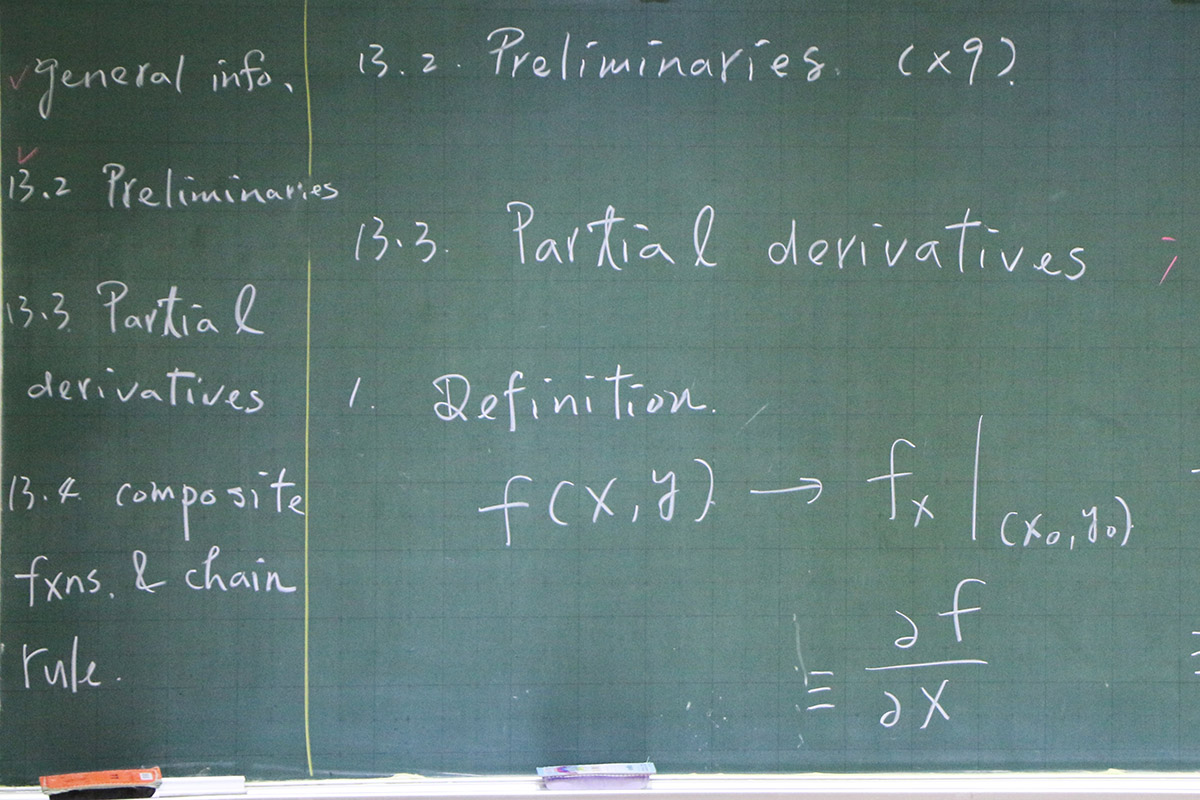 ✓ general info.
✓
13.2 Preliminaries
13.3 Partial
derivatives
13.4 composite
fxns. & chain
rule.
13.2. Preliminaries. (x9).
13.3. Partial derivatives ;
1. Definition.
f(x,y) → fx|(x₀,y₀)
≡ ∂f
∂x